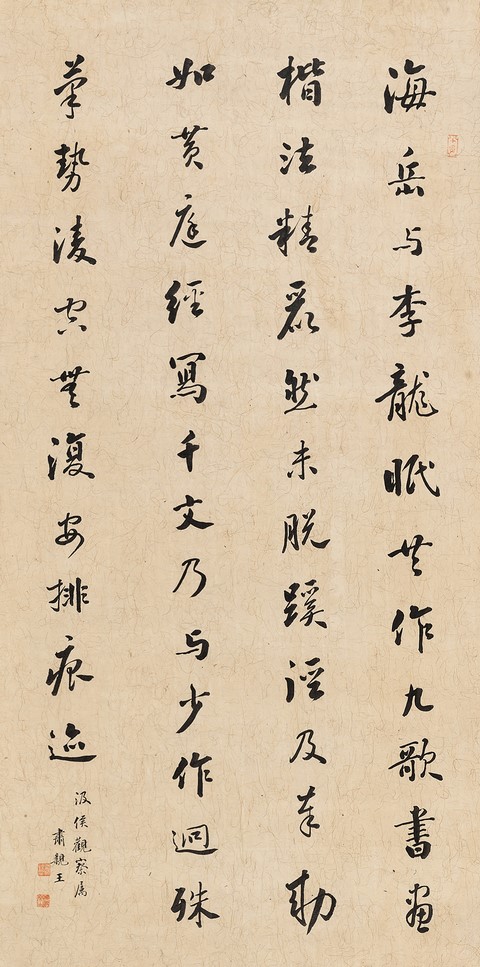 海岳与李龍眠共作九歌書畫
楷法精麗然未脫蹊徑及奉勅
如黃庭經寫千文乃与少作迥殊
筆勢淩空無復安排痕迹
汲侯觀察屬
肅親王